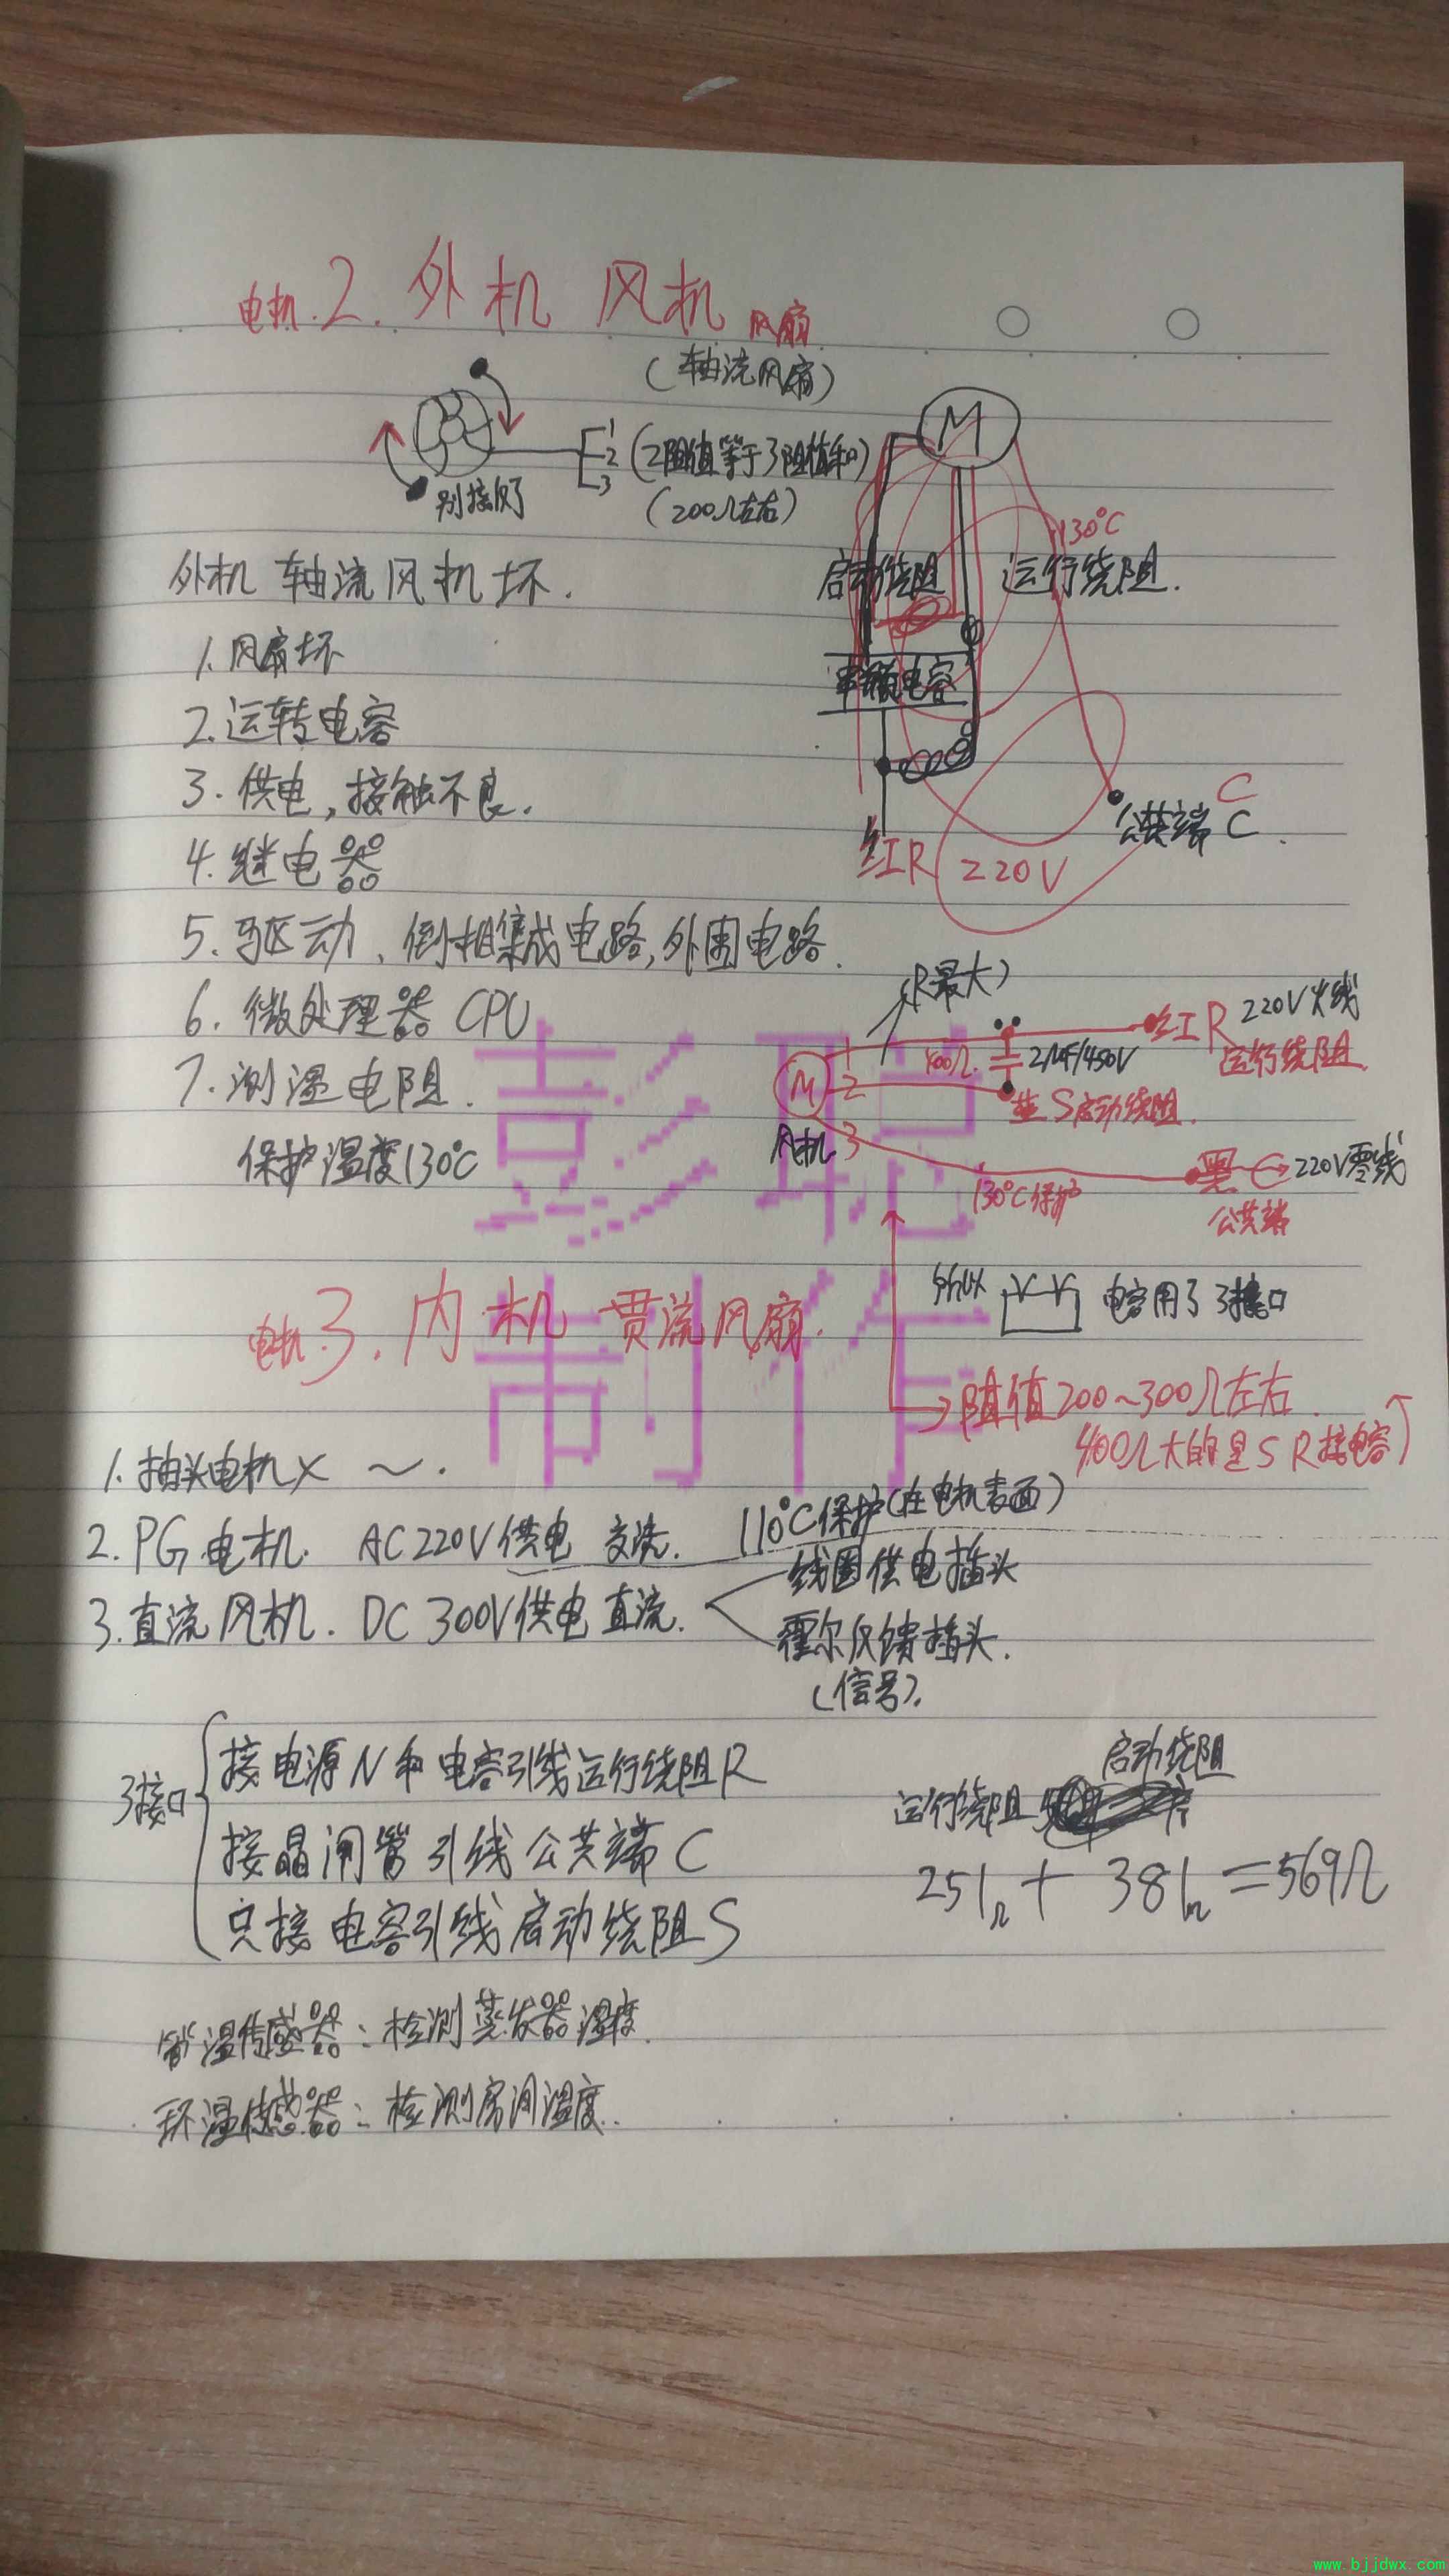 电机.2.外机 风机 风扇
(轴流风扇)
M
1
2 (2阻值等于3阻值和)
3
(200Ω左右)
别接反了
130℃
启动绕阻 运行绕阻.
外机 轴流风机坏.
1.风扇坏
2.运转电容
电容
3.供电,接触不良.
C
公共端 C.
红R
220V
4.继电器
5.驱动、倒相集成电路,外围电路.
(R最大)
6.微处理器 CPU
红R 220V火线
运行绕阻
1
400Ω
2μF/450V
M 2
S启动绕阻.
7.测温电阻.
风机 3
保护温度130℃
130℃保护
黑 C 220V零线
公共端
电容用了3接口
电机.3.内机 贯流风扇.
阻值200~300Ω左右.
400Ω大的是S R接电容
1.抽头电机× ~.
2.PG电机. AC220V供电 交流. 110℃保护(在电机表面)
线圈供电插头
3.直流风机. DC 300V供电直流.
霍尔反馈插头.
(信号).
3接口
接电源N和电容引线运行绕阻R
接晶闸管引线公共端C
只接电容引线启动绕阻S
启动绕阻
运行绕阻
251Ω + 381Ω =569Ω
管温传感器:检测蒸发器温度.
环温传感器:检测房间温度.
彭聪
制作
www.bjjdwx.com